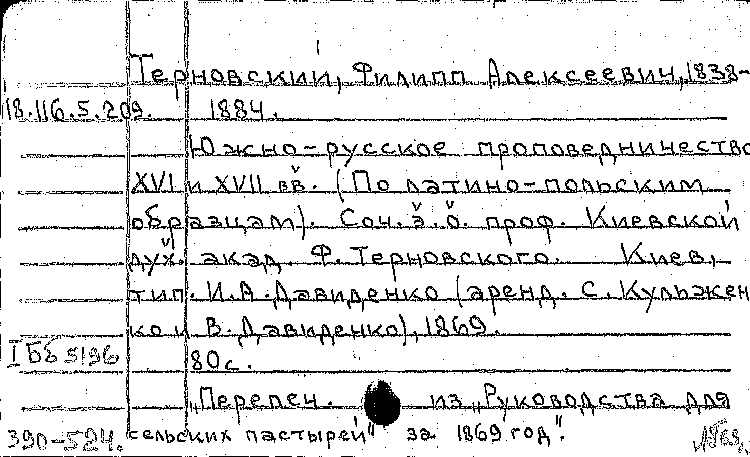 Терновский, Филипп Алексеевич, 1838-
18.116.5.209. 1884.
Южно-русское проповедничество
XVI и XVII вв. (По латино-польским
образцам). Соч. э. о. проф. Киевской
дух. акад. Ф. Терновского. Киев,
тип. И.А. Давиденко (аренд. С. Кульжен
ко и В. Давиденко), 1869.
I Бб 5196 80 с.
"Перепеч. из "Руководства для
390-524. сельских пастырей" за 1869 год".